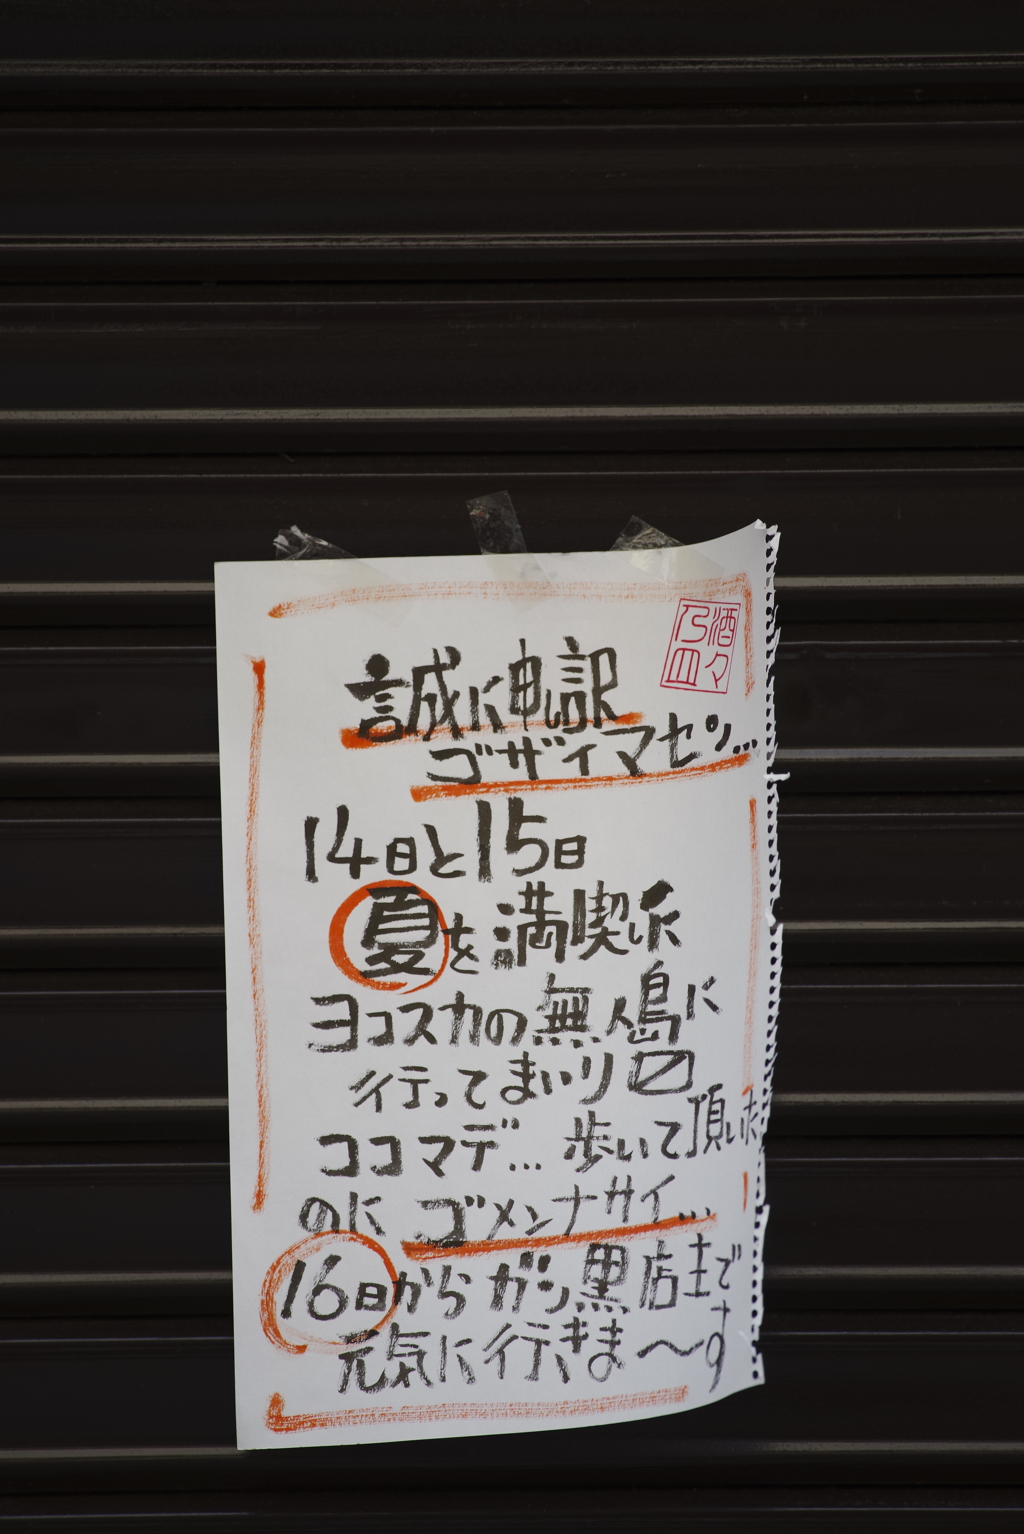 酒々
乃皿
誠に申し訳
ゴザイマセン...
14日と15日
夏を満喫しに
ヨコスカの無人島に
行ってまいり〼
ココマデ... 歩いて頂いた
のに ゴメンナサイ...
16日から ガン黒店主で
元気に行きま〜す